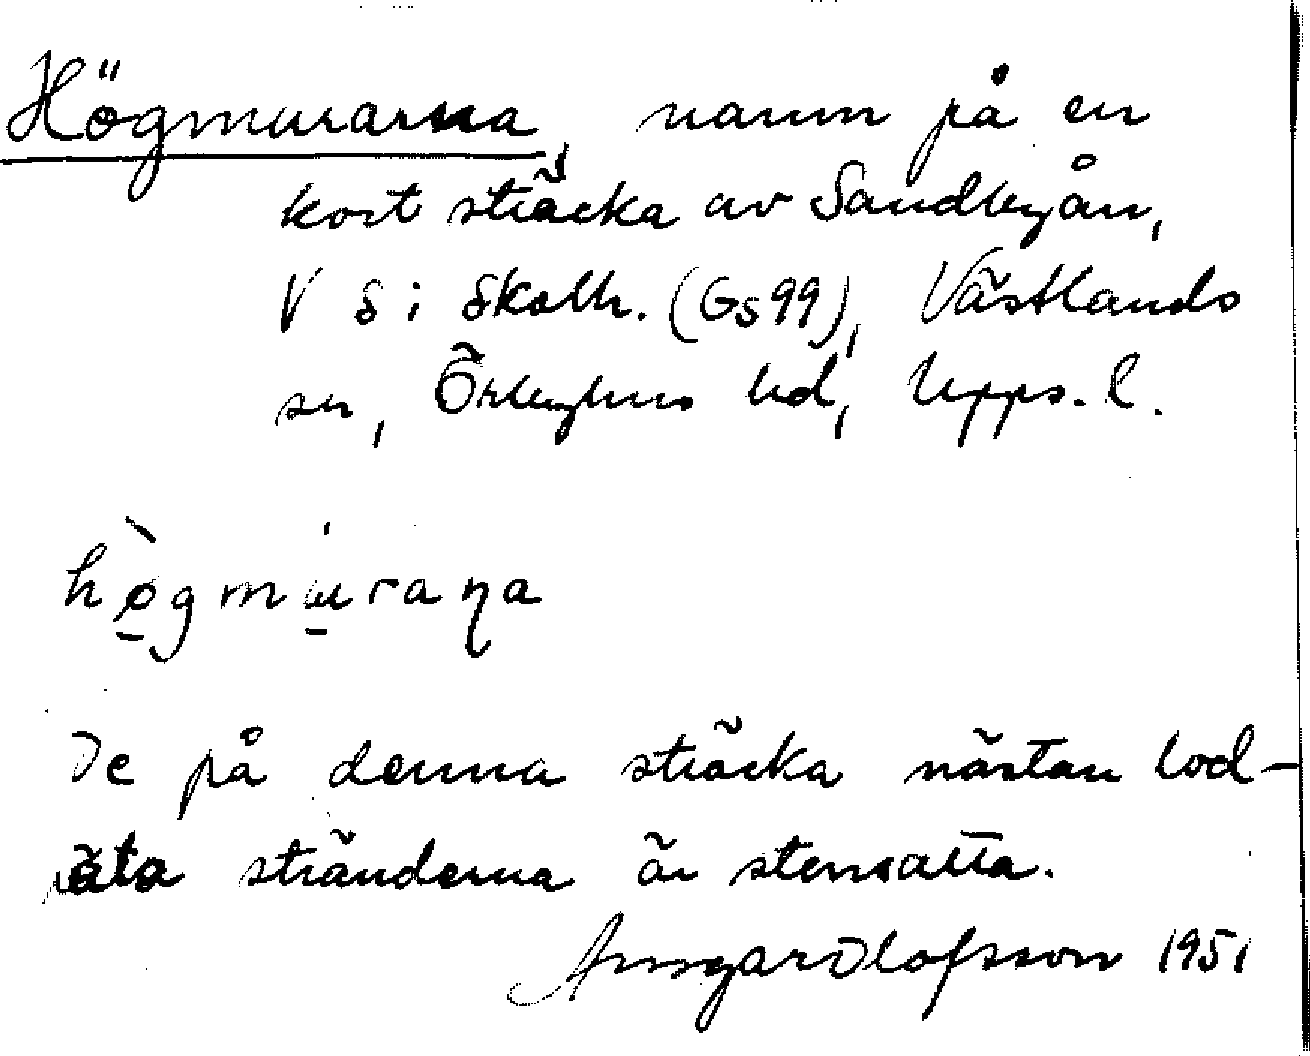 Högmurarna, namn på en
kort sträcka av Sandbyån,
V S i Skolh. (Gs99), Västlands
sn, Örbyhus hd, Upps. l.
hø̀gmúraṇa
De på denna sträcka nästan lod-
räta stränderna är stensatta.
Ansgar Olofsson 1951